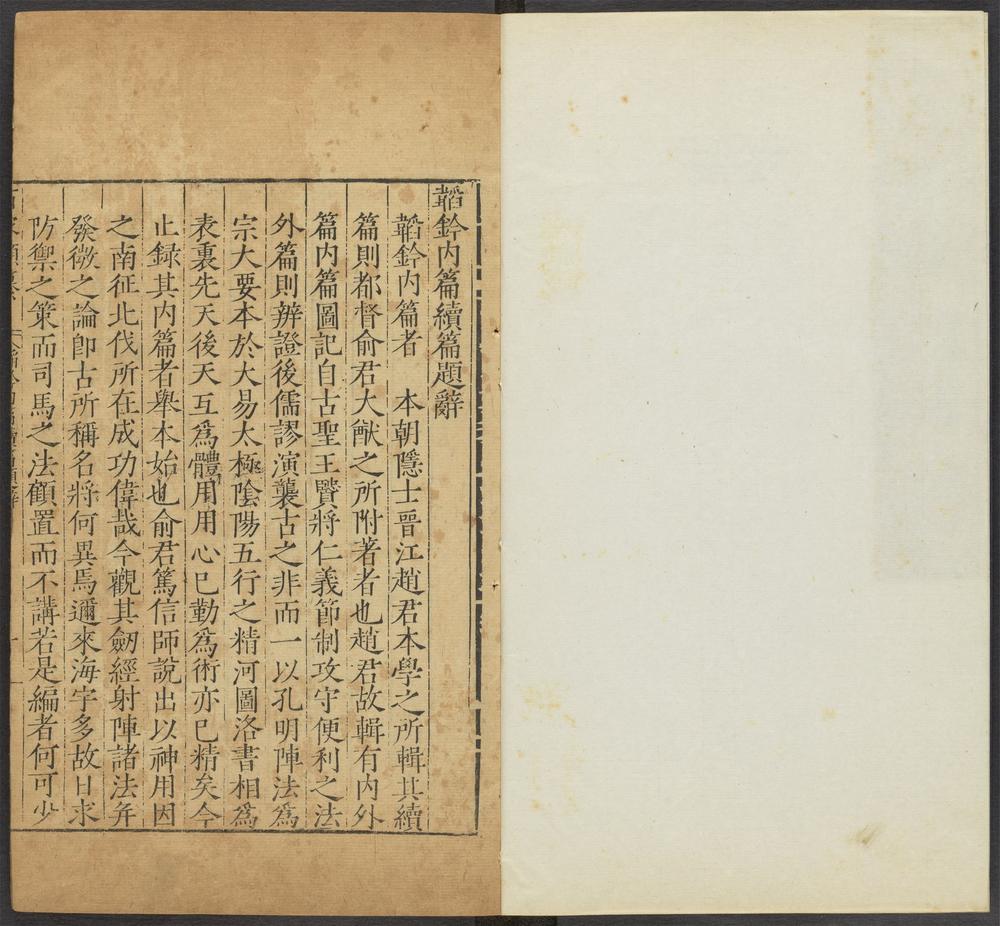 韜鈐内篇續篇題辭
韜鈐内篇者　本朝隱士晉江趙君本學之所輯其續
篇則都督俞君大猷之所附著者也趙君故輯有内外
篇内篇圖記自古聖王賢將仁義節制攻守便利之法
外篇則辨證後儒謬演襲古之非而一以孔明陣法爲
宗大要本於大易太極陰陽五行之精河圖洛書相爲
表裏先天後天互爲體用用心已勤爲術亦已精矣今
止録其内篇者舉本始也俞君篤信師說出以神用因
之南征北伐所在成功偉哉今觀其劒經射陣諸法弁
發微之論卽古所稱名將何異焉邇來海宇多故日求
防禦之策而司馬之法顧置而不講若是編者何可少